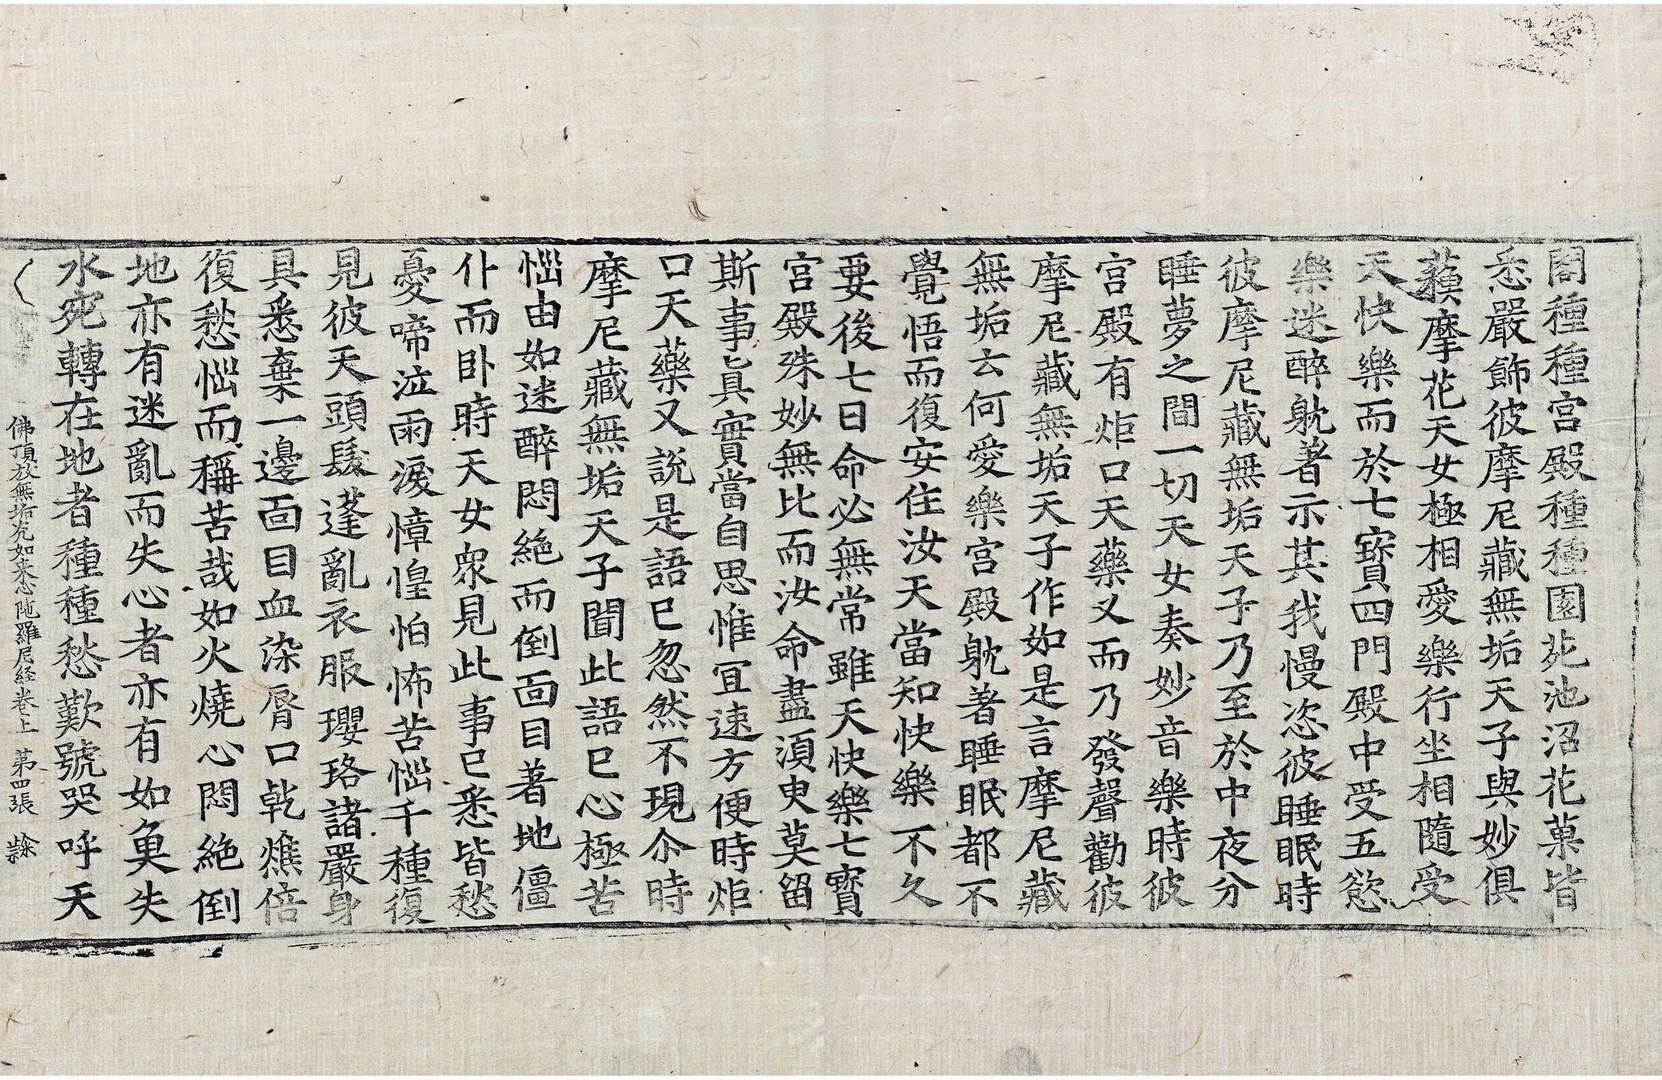 閣種種宮殿種種園苑池沼花菓皆
悉嚴飾彼摩尼藏無垢天子與妙俱
蘓摩花天女極相愛樂行坐相隨受
天快樂而於七寶四門殿中受五慾
樂迷醉躭著示其我慢恣彼睡眠時
彼摩尼藏無垢天子乃至於中夜分
睡夢之間一切天女奏妙音樂時彼
宮殿有炬口天藥叉而乃發聲勸彼
摩尼藏無垢天子作如是言摩尼藏
無垢云何愛樂宮殿躭著睡眠都不
覺悟而復安住汝天當知快樂不久
要後七日命必無常雖天快樂七寶
宮殿殊妙無比而汝命盡湏臾莫留
斯事真實當自思惟冝速方便時炬
口天藥叉說是語已忽然不現尒時
摩尼藏無垢天子聞此語已心極苦
惱由如迷醉悶絶而倒面目著地僵
仆而卧時天女衆見此事已悉皆愁
憂啼泣雨淚慞惶怕怖苦惱千種復
見彼天頭髮蓬亂衣服瓔珞諸嚴身
具悉棄一邊面目血染脣口乾燋倍
復愁惱而稱苦哉如火燒心悶絶倒
地亦有迷亂而失心者亦有如魚失
水宛轉在地者種種愁歎號哭呼天
佛頂放無垢光如来心陁羅尼経卷上 第四張